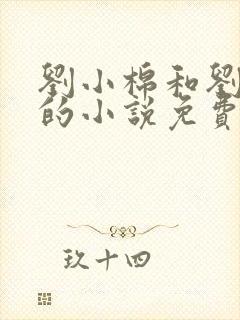 劉小棉和劉
的小說免費
玖十四